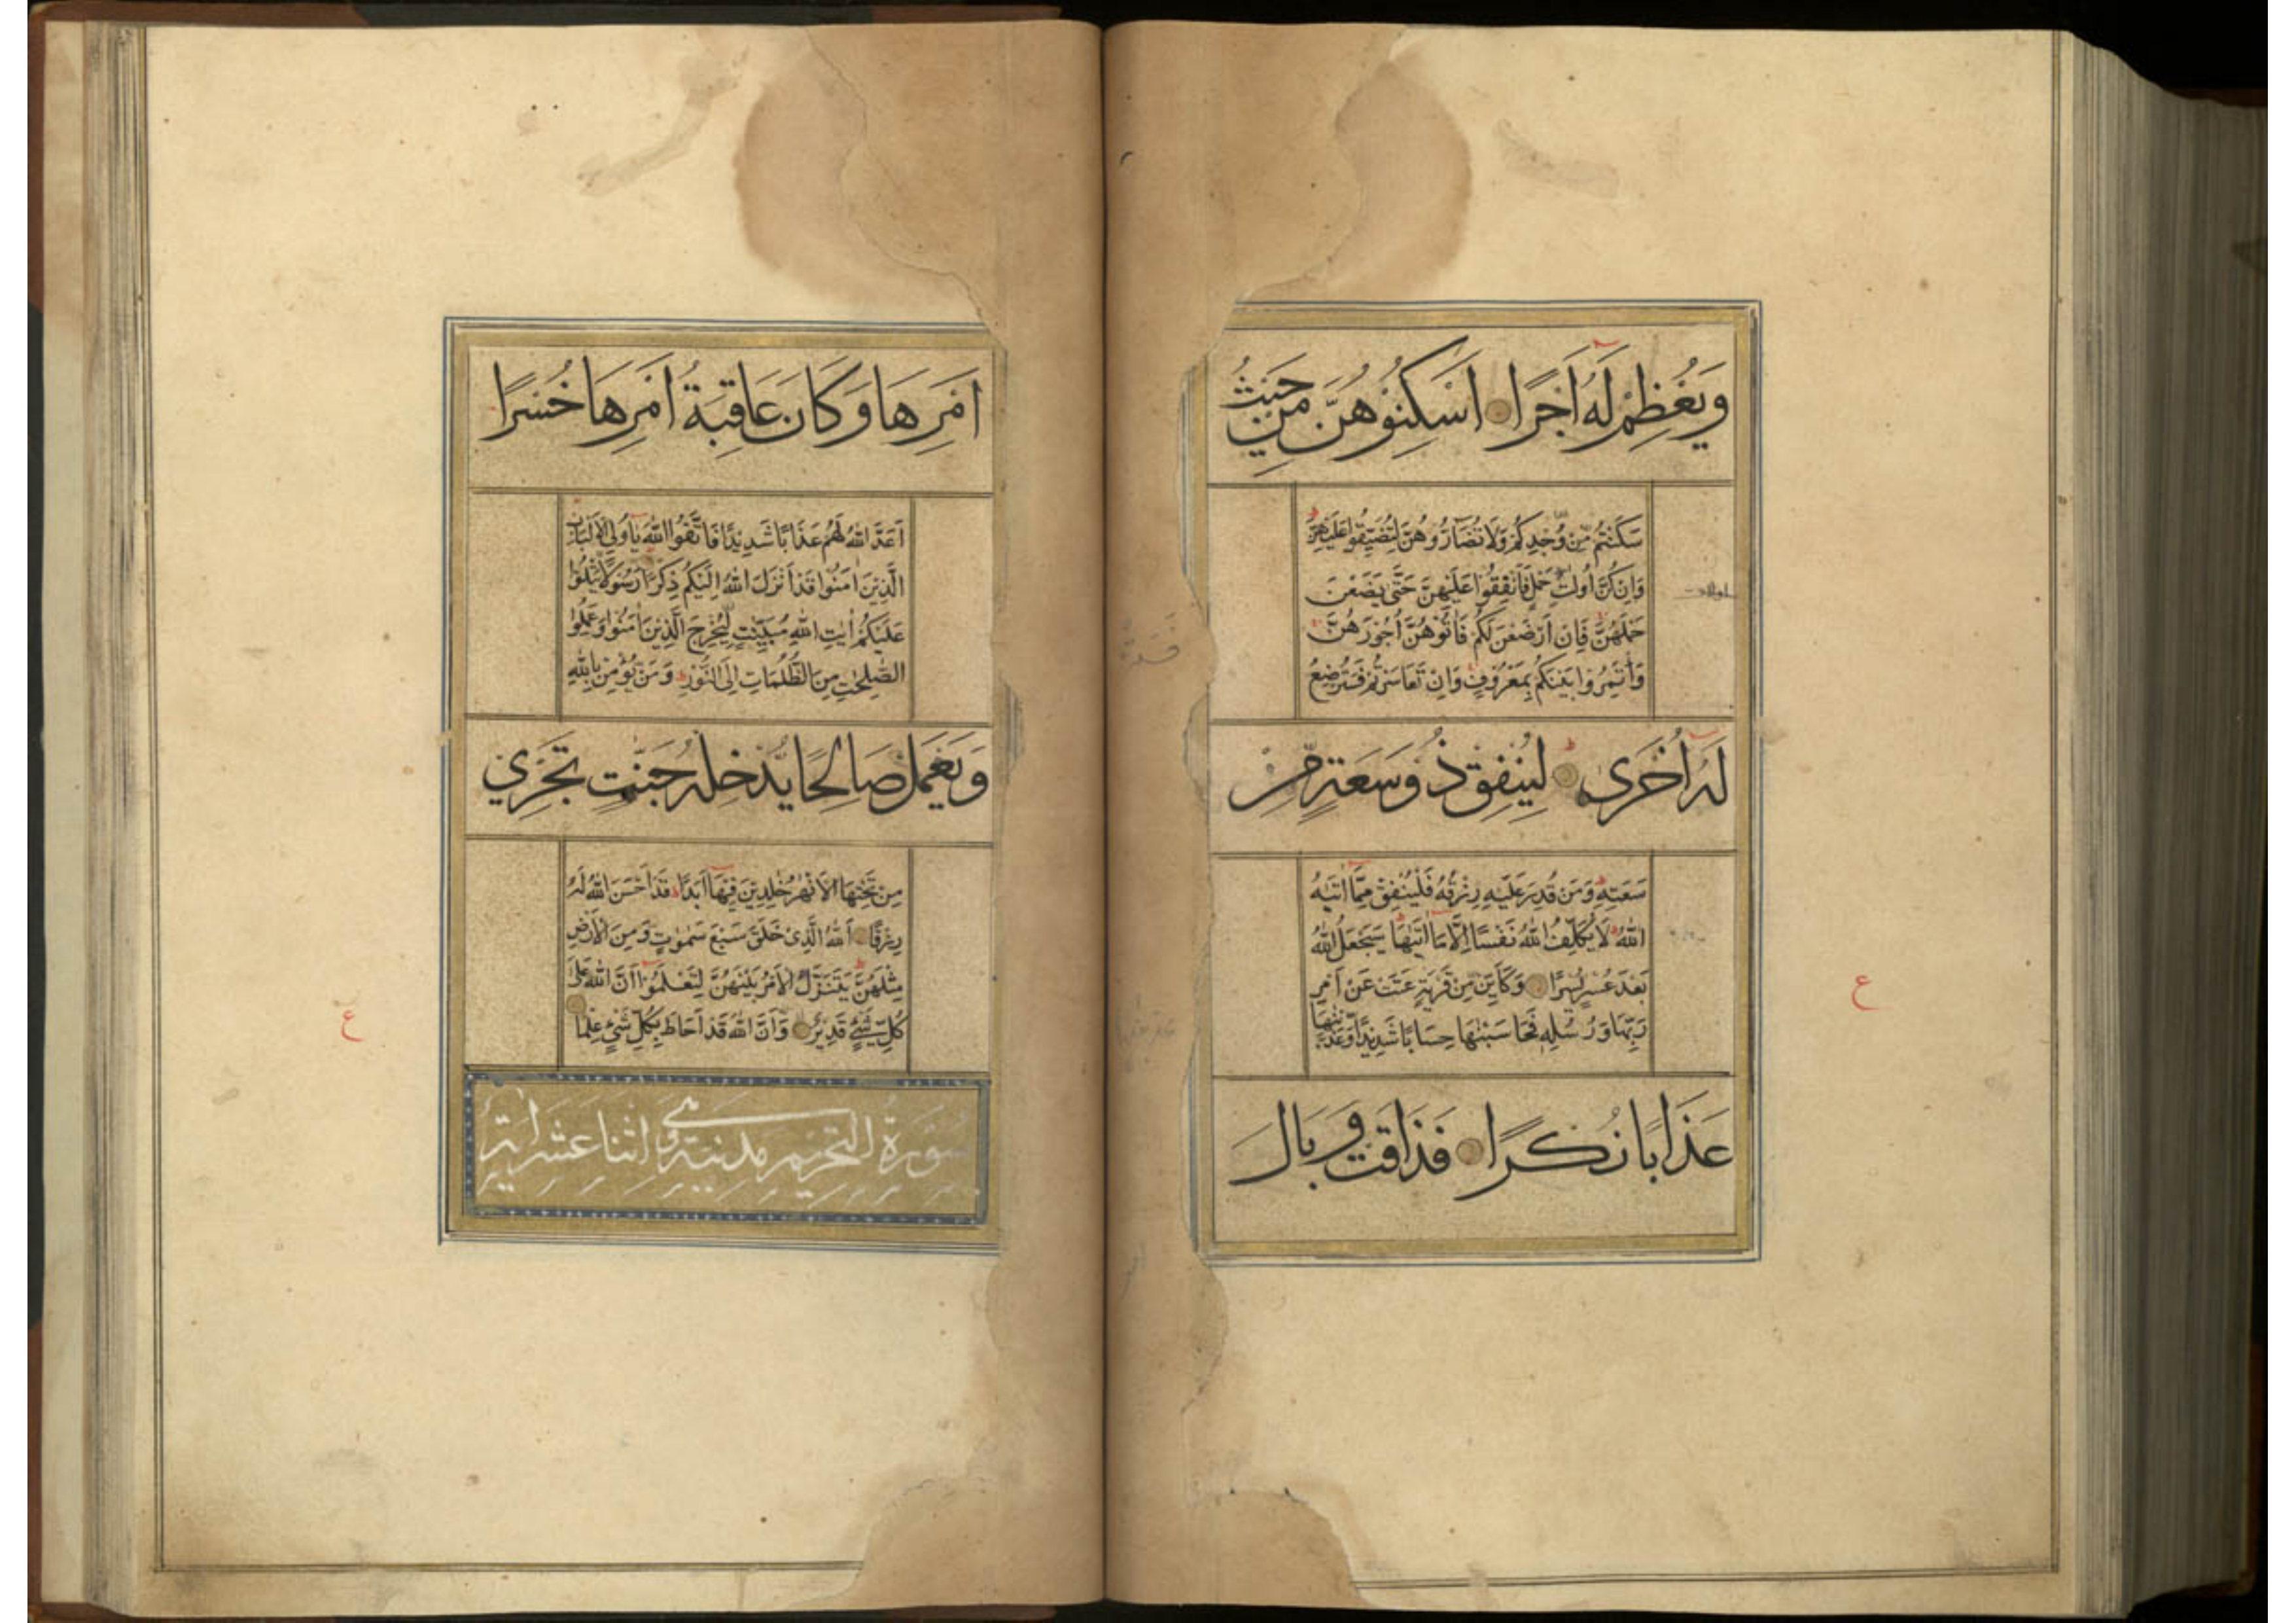 وَيُعْظِمْ لَهُ أَجْرًا اَسْكِنُوهُنَّ مِنْ حَيْثُ
سَكَنْتُمْ مِّنْ وُّجْدِكُمْ وَلَا تُضَآرُّوهُنَّ لِتُضَيِّقُوا عَلَيْهِنَّ
وَاِنْ كُنَّ اُولَاتِ حَمْلٍ فَاَنْفِقُوا عَلَيْهِنَّ حَتّٰى يَضَعْنَ
حَمْلَهُنَّ فَاِنْ اَرْضَعْنَ لَكُمْ فَاٰتُوْهُنَّ اُجُوْرَهُنَّ
وَأْتَمِرُوْا بَيْنَكُمْ بِمَعْرُوْفٍ وَاِنْ تَعَاسَرْتُمْ فَسَتُرْضِعُ
لَهُ اُخْرٰى لِيُنْفِقْ ذُوْ سَعَةٍ مِّنْ
سَعَتِهٖ وَمَنْ قُدِرَ عَلَيْهِ رِزْقُهُ فَلْيُنْفِقْ مِمَّآ اٰتٰىهُ
اللّٰهُ لَا يُكَلِّفُ اللّٰهُ نَفْسًا اِلَّا مَآ اٰتٰىهَا سَيَجْعَلُ اللّٰهُ
بَعْدَ عُسْرٍ يُسْرًا وَكَاَيِّنْ مِّنْ قَرْيَةٍ عَتَتْ عَنْ اَمْرِ
رَبِّهَا وَرُسُلِهٖ فَحَاسَبْنٰهَا حِسَابًا شَدِيْدًا وَّعَذَّبْنٰهَا
عَذَابًا نُكْرًا فَذَاقَتْ وَبَالَ
ع
اَمْرِهَا وَكَانَ عَاقِبَةُ اَمْرِهَا خُسْرًا
اَعَدَّ اللّٰهُ لَهُمْ عَذَابًا شَدِيْدًا فَاتَّقُوا اللّٰهَ يٰٓاُولِى الْاَلْبَابِ
الَّذِيْنَ اٰمَنُوْا قَدْ اَنْزَلَ اللّٰهُ اِلَيْكُمْ ذِكْرًا رَّسُوْلًا يَّتْلُوْا
عَلَيْكُمْ اٰيٰتِ اللّٰهِ مُبَيِّنٰتٍ لِّيُخْرِجَ الَّذِيْنَ اٰمَنُوْا وَعَمِلُوا
الصّٰلِحٰتِ مِنَ الظُّلُمَاتِ اِلَى النُّوْرِ وَمَنْ يُّؤْمِنْ بِاللّٰهِ
وَيَعْمَلْ صَالِحًا يُّدْخِلْهُ جَنّٰتٍ تَجْرِيْ
مِنْ تَحْتِهَا الْاَنْهٰرُ خٰلِدِيْنَ فِيْهَآ اَبَدًا قَدْ اَحْسَنَ اللّٰهُ لَهُ
رِزْقًا اَللّٰهُ الَّذِىْ خَلَقَ سَبْعَ سَمٰوٰتٍ وَّمِنَ الْاَرْضِ
مِثْلَهُنَّ يَتَنَزَّلُ الْاَمْرُ بَيْنَهُنَّ لِتَعْلَمُوْٓا اَنَّ اللّٰهَ عَلٰى
كُلِّ شَىْءٍ قَدِيْرٌ وَّاَنَّ اللّٰهَ قَدْ اَحَاطَ بِكُلِّ شَىْءٍ عِلْمًا
سُوْرَةُ التَّحْرِيْمِ مَدَنِيَّةٌ وَهِىَ اثْنَا عَشَرَ اٰيَةً
ع